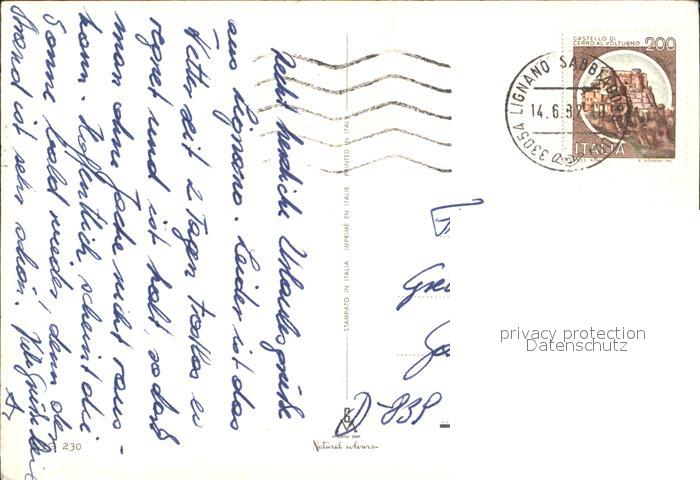 Recht herzliche Urlaubsgrüße
aus Lignano. Leider ist das
Wetter seit 2 Tagen trostlos es
regnet und ist kalt, sodaß
man ohne Jacke nicht raus-
kann. Hoffentlich scheint die
Sonne bald wieder, denn der
Strand ist sehr schön. Viele Grüße
STAMPATO IN ITALIA IMPRIMÉ EN ITALIE PRINTED IN ITALY
CASTELLO DI
CERRO AL VOLTURNO 200
ITALIA
33054 LIGNANO SABBIADORO
14.6.8
D-839
230
Natural colours
privacy protection
Datenschutz